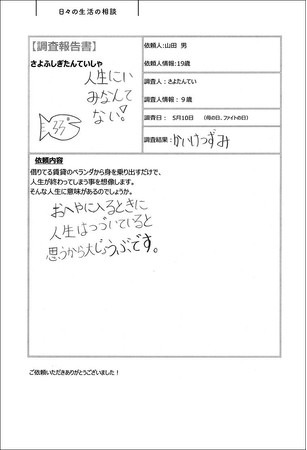 日々の生活の相談
【調査報告書】
さよふしぎたんていしゃ
人生にい
みなんて
ない!
依頼人:山田 男
依頼人情報:19歳
調査人:さよたんてい
調査人情報:9歳
調査日: 5月10日 (母の日、ファイトの日)
調査結果:かいけつずみ
依頼内容
借りてる賃貸のベランダから身を乗り出すだけで、
人生が終わってしまう事を想像します。
そんな人生に意味があるのでしょうか。
おへやに入るときに
人生はつづいていると
思うから大じょうぶです。
ご依頼いただきありがとうございました!